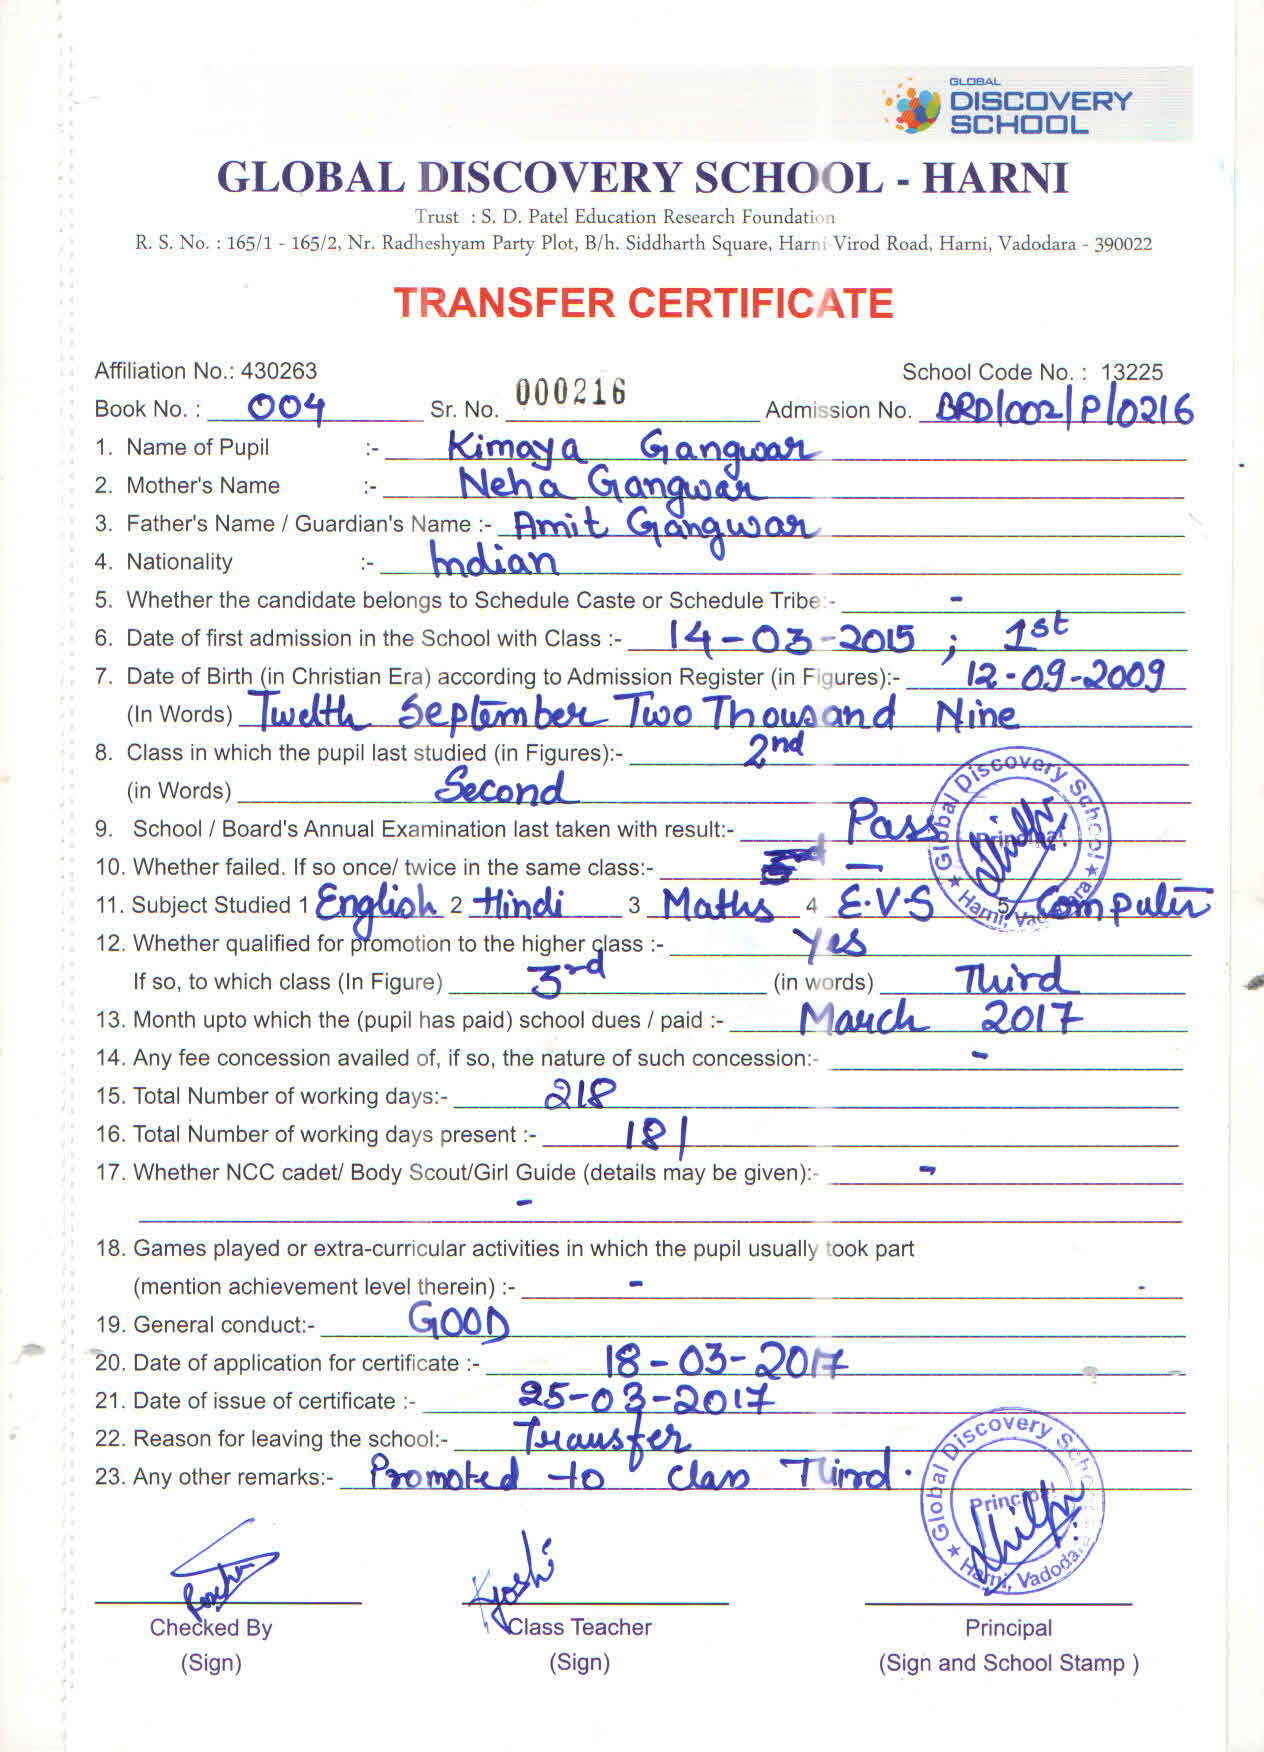 GLOBAL
DISCOVERY
SCHOOL
GLOBAL DISCOVERY SCHOOL - HARNI
Trust : S. D. Patel Education Research Foundation
R. S. No. : 165/1 - 165/2, Nr. Radheshyam Party Plot, B/h. Siddharth Square, Harni-Virod Road, Harni, Vadodara - 390022
TRANSFER CERTIFICATE
Affiliation No.: 430263 School Code No. : 13225
Book No. : 004 Sr. No. 000216 Admission No. BRD/002/P/0216
1. Name of Pupil :- Kimaya Gangwar
2. Mother's Name :- Neha Gangwar
3. Father's Name / Guardian's Name :- Amit Gangwar
4. Nationality :- Indian
5. Whether the candidate belongs to Schedule Caste or Schedule Tribe:- -
6. Date of first admission in the School with Class :- 14-03-2015 ; 1st
7. Date of Birth (in Christian Era) according to Admission Register (in Figures):- 12-09-2009
(In Words) Twelth September Two Thousand Nine
8. Class in which the pupil last studied (in Figures):- 2nd
(in Words) Second
9. School / Board's Annual Examination last taken with result:- Pass
10. Whether failed. If so once/ twice in the same class:- -
11. Subject Studied 1 English 2 Hindi 3 Maths 4 E.V.S 5 Computer
12. Whether qualified for promotion to the higher class :- Yes
If so, to which class (In Figure) 3rd (in words) Third
13. Month upto which the (pupil has paid) school dues / paid :- March 2017
14. Any fee concession availed of, if so, the nature of such concession:- -
15. Total Number of working days:- 218
16. Total Number of working days present :- 181
17. Whether NCC cadet/ Body Scout/Girl Guide (details may be given):- -
-
18. Games played or extra-curricular activities in which the pupil usually took part
(mention achievement level therein) :- - -
19. General conduct:- GOOD
20. Date of application for certificate :- 18-03-2017
21. Date of issue of certificate :- 25-03-2017
22. Reason for leaving the school:- Transfer
23. Any other remarks:- Promoted to class Third.
Global Discovery School
Principal
Harni, Vadodara
Global Discovery School
Principal
Harni, Vadodara
Kjoshi
Checked By Class Teacher Principal
(Sign) (Sign) (Sign and School Stamp )